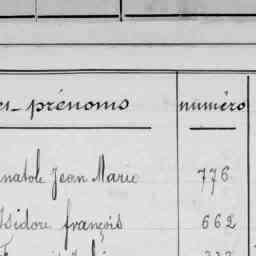 prénoms numéro
Jean Marie 776
Isidore françois 662